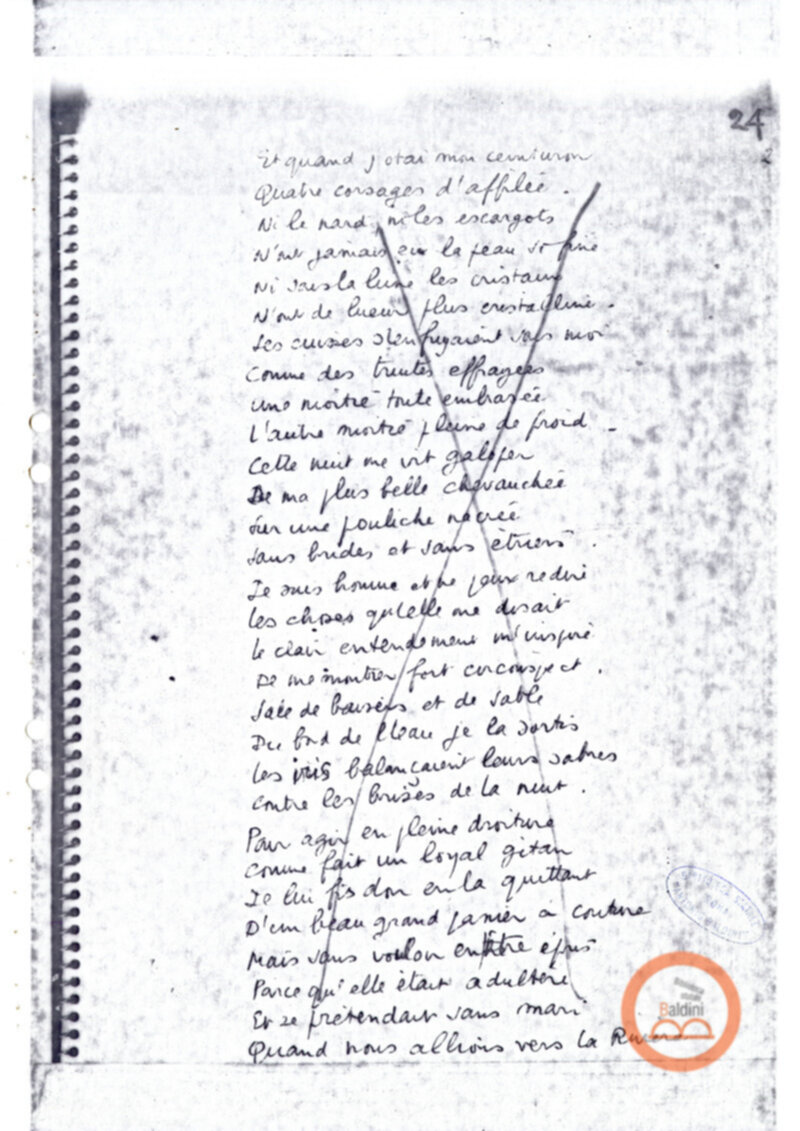 24
2
Et quand j'otai mon ceinturon
Quatre corsages d'affilée.
Ni le nard, ni les escargots
N'ont jamais eu la peau si fine
Ni sous la lune les cristaux
N'ont de lueur plus cristalline.
Ses cuisses s'enfuyaient sous moi
Comme des truites effrayées
Une moitié toute embrasée
L'autre moitié pleine de froid
Cette nuit me vit galoper
De ma plus belle chevauchée
Sur une pouliche nacrée
Sans brides et sans étriers.
Je suis homme et ne peux redire
Les choses qu'elle me disait
Le clair entendement m'inspire
De me montrer fort circonspect.
Sale de baisers et de sable
Du bord de l'eau je la sortis
Les iris balançaient leurs sabres
Contre les brises de la nuit.
Pour agir en pleine droiture
Comme fait un loyal gitan
Je lui fis don en la quittant
D'un beau grand panier à couture
Mais sans vouloir en être épris
Parce qu'elle était adultère
Et se prétendait sans mari
Quand nous allions vers la
Baldini